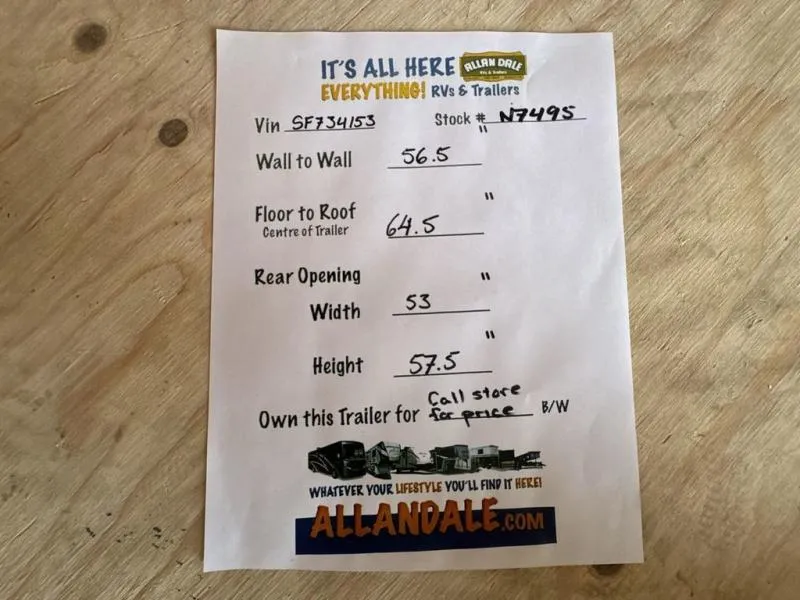 IT'S ALL HERE ALLAN DALE RVs & Trailers
EVERYTHING! RVs & Trailers
Vin SF734153 Stock # N7495
"
Wall to Wall 56.5
"
Floor to Roof 64.5
Centre of Trailer
Rear Opening "
Width 53
"
Height 57.5
Call store
Own this Trailer for for price B/W
WHATEVER YOUR LIFESTYLE YOU'LL FIND IT HERE!
ALLANDALE.COM